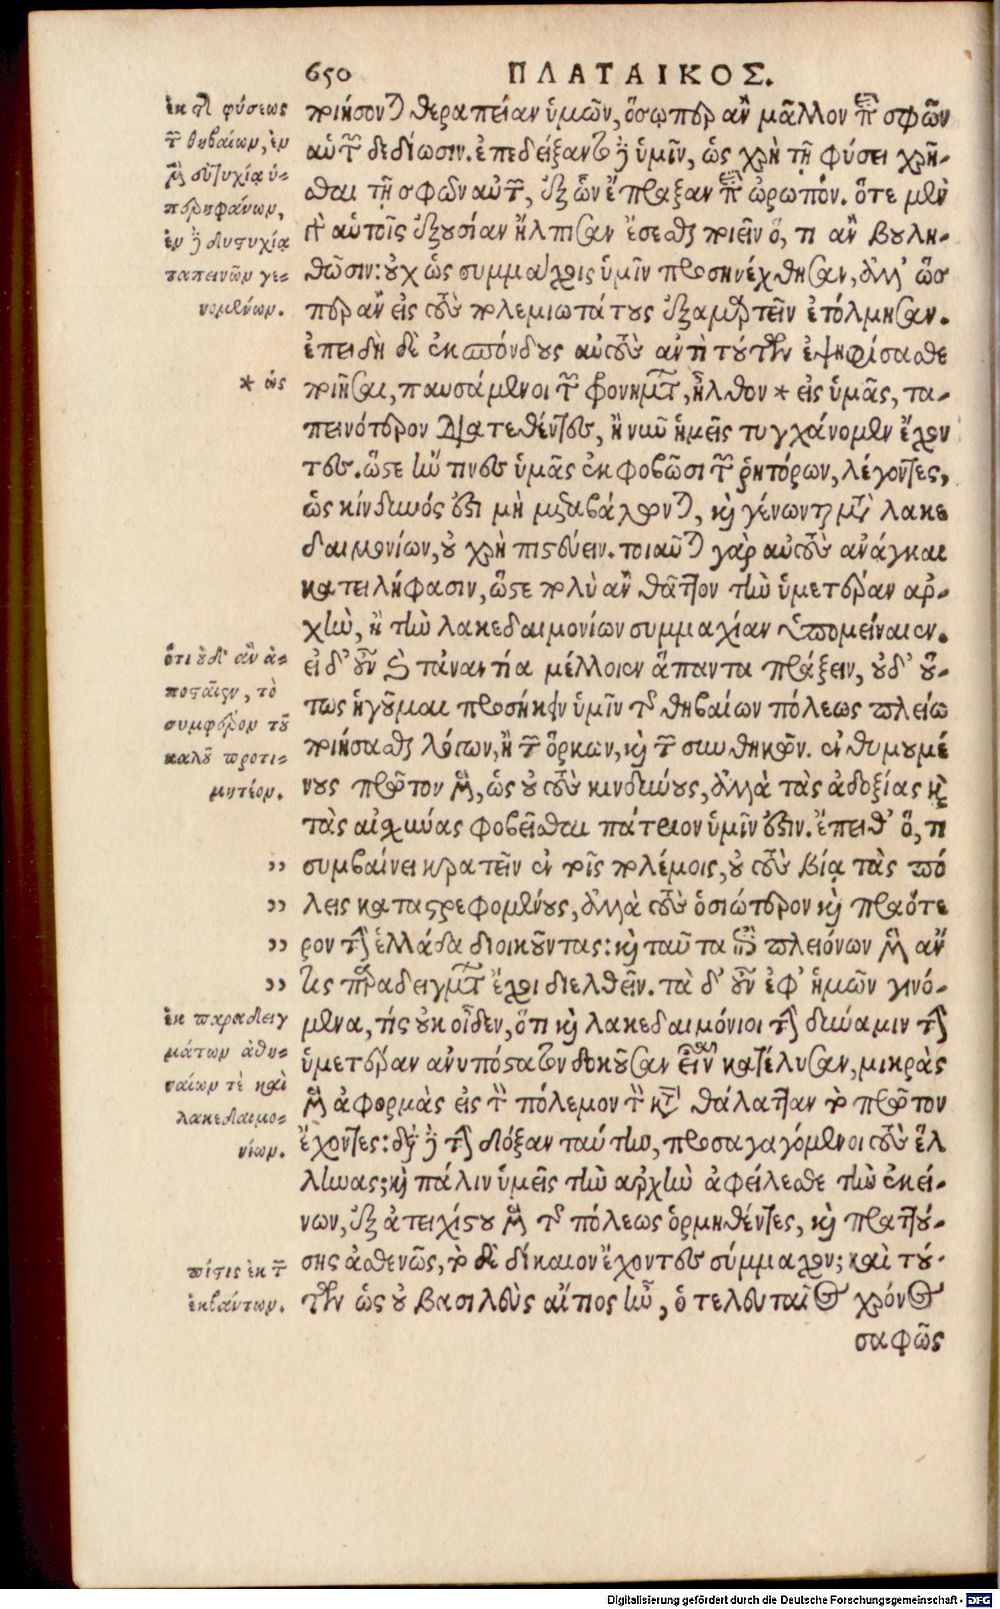 650 ΠΛΑΤΑΙΚΟΣ.
ἐκ τῆς φύσεως
τῶν θηβαίων, ἐν
μὲν εὐτυχίᾳ ὑ-
περηφάνων,
ἐν δὲ δυςυχίᾳ
ταπεινῶν γε-
νομένων.
* ὡς
ὅτι οὐδ' ἂν ἀ-
ποςαῖεν, τὸ
συμφέρον τοῦ
καλοῦ προτι-
μητέον.
ἐκ παραδειγ
μάτων ἀθη-
ναίων τὲ καὶ
λακεδαιμο-
νίων.
πίςις ἐκ τῶν
ἐκβάντων.
ποιήσονται θεραπείαν ὑμῶν, ὅσῳπερ ἂν μᾶλλον περὶ σφῶν
αὐτῶν δεδίωσιν. ἐπεδείξαντο δὲ ὑμῖν, ὡς χρὴ τῇ φύσει χρῆ-
σθαι τῇ σφῶν αὐτῶν, ἐξ ὧν ἔπραξαν περὶ ὠρωπόν. ὅτε μὲν
γὰρ αὑτοῖς ἐξουσίαν ἤλπισαν ἔσεσθαι ποιεῖν ὅ, τι ἂν βουλη-
θῶσιν: οὐχ ὡς συμμάχοις ὑμῖν προσηνέχθησαν, ἀλλ' ὥσ
περ ἂν εἰς τοὺς πολεμιωτάτους ἐξαμαρτεῖν ἐτόλμησαν.
ἐπειδὴ δὲ ἐκσπόνδους αὐτοὺς ἀντὶ τούτων ἐψηφίσασθε
ποιῆσαι, παυσάμενοι τῶν φρονημάτων, ἦλθον * εἰς ὑμᾶς, τα-
πεινότερον διατεθέντες, ἢ νῦν ἡμεῖς τυγχάνομεν ἔχον
τες. ὥςε ἤν τινες ὑμᾶς ἐκφοβῶσι τῶν ῥητόρων, λέγοντες,
ὡς κίνδυνός ἐςι μὴ μεταβάλωνται, καὶ γένωνται μετὰ λακε
δαιμονίων, οὐ χρὴ πιςεύειν. τοιαῦται γὰρ αὐτοὺς ἀνάγκαι
κατειλήφασιν, ὥςε πολὺ ἂν θᾶττον τὴν ὑμετέραν ἀρ-
χὴν, ἢ τὴν λακεδαιμονίων συμμαχίαν ὑπομείναιεν.
εἰ δ' οὖν καὶ τἀναντία μέλλοιεν ἅπαντα πράξειν, οὐδ' οὕ-
τως ἡγοῦμαι προσήκειν ὑμῖν τῆς θηβαίων πόλεως πλείω
ποιήσασθαι λόγον, ἢ τῶν ὅρκων, καὶ τῶν συνθηκῶν. ἐνθυμουμέ
νους πρῶτον μὲν, ὡς οὐ τοὺς κινδύνους, ἀλλὰ τὰς ἀδοξίας καὶ
τὰς αἰσχύνας φοβεῖσθαι πάτριον ὑμῖν ἐςιν. ἔπειθ' ὅ, τι
,, συμβαίνει κρατεῖν ἐν τοῖς πολέμοις, οὐ τοὺς βίᾳ τὰς πό
,, λεις καταςρεφομένους, ἀλλὰ τοὺς ὁσιώτερον καὶ πραότε
,, ρον τὴν ἑλλάδα διοικοῦντας: καὶ ταῦτα ἐπὶ πλειόνων μὲν ἄν
,, τις παραδειγμάτων ἔχοι διελθεῖν. τὰ δ' οὖν ἐφ' ἡμῶν γινό-
μενα, τίς οὐκ οἶδεν, ὅτι καὶ λακεδαιμόνιοι τὴν δύναμιν τὴν
ὑμετέραν ἀνυπόςατον δοκοῦσαν εἶναι κατέλυσαν, μικρὰς
μὲν ἀφορμὰς εἰς τὸν πόλεμον τὸν κατὰ θάλατταν τὸ πρῶτον
ἔχοντες: διὰ δὲ τὴν δόξαν ταύτην, προσαγαγόμενοι τοὺς ἕλ
ληνας; καὶ πάλιν ὑμεῖς τὴν ἀρχὴν ἀφείλεσθε τὴν ἐκεί-
νων, ἐξ ἀτειχίςου μὲν τῆς πόλεως ὁρμηθέντες, καὶ πραττού-
σης ἀσθενῶς, τὸ δὲ δίκαιον ἔχοντες σύμμαχον; καὶ τού-
των ὡς οὐ βασιλεὺς αἴτιος ἦν, ὁ τελευταῖος χρόνος
σαφῶς
Digitalisierung gefördert durch die Deutsche Forschungsgemeinschaft - DFG